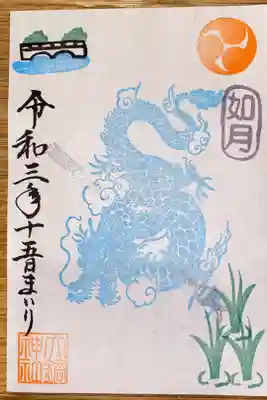 如月
令和三年十五日まいり
神社